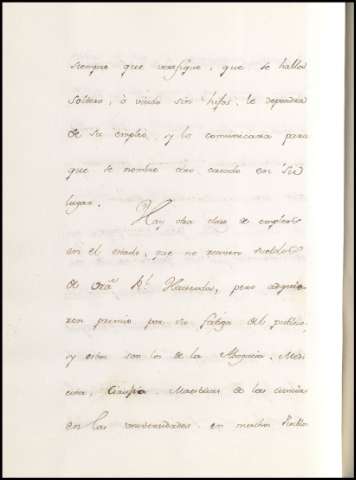 siempre que verifique, que se halla
soltero, ò viudo sin hijos, le depondra
de su empleo, y lo comunicara para
que se nombre otro casado en su
lugar.
Hay otra clase de empleos
en el estado, que no tienen sueldos
de Rl. Hacienda, pero adquie-
ren premio por su fatiga del publico,
y estos son los de la Abogacia, Medi
cina, Cirugia, Maestros de las ciencias
en las universidades, en muchos